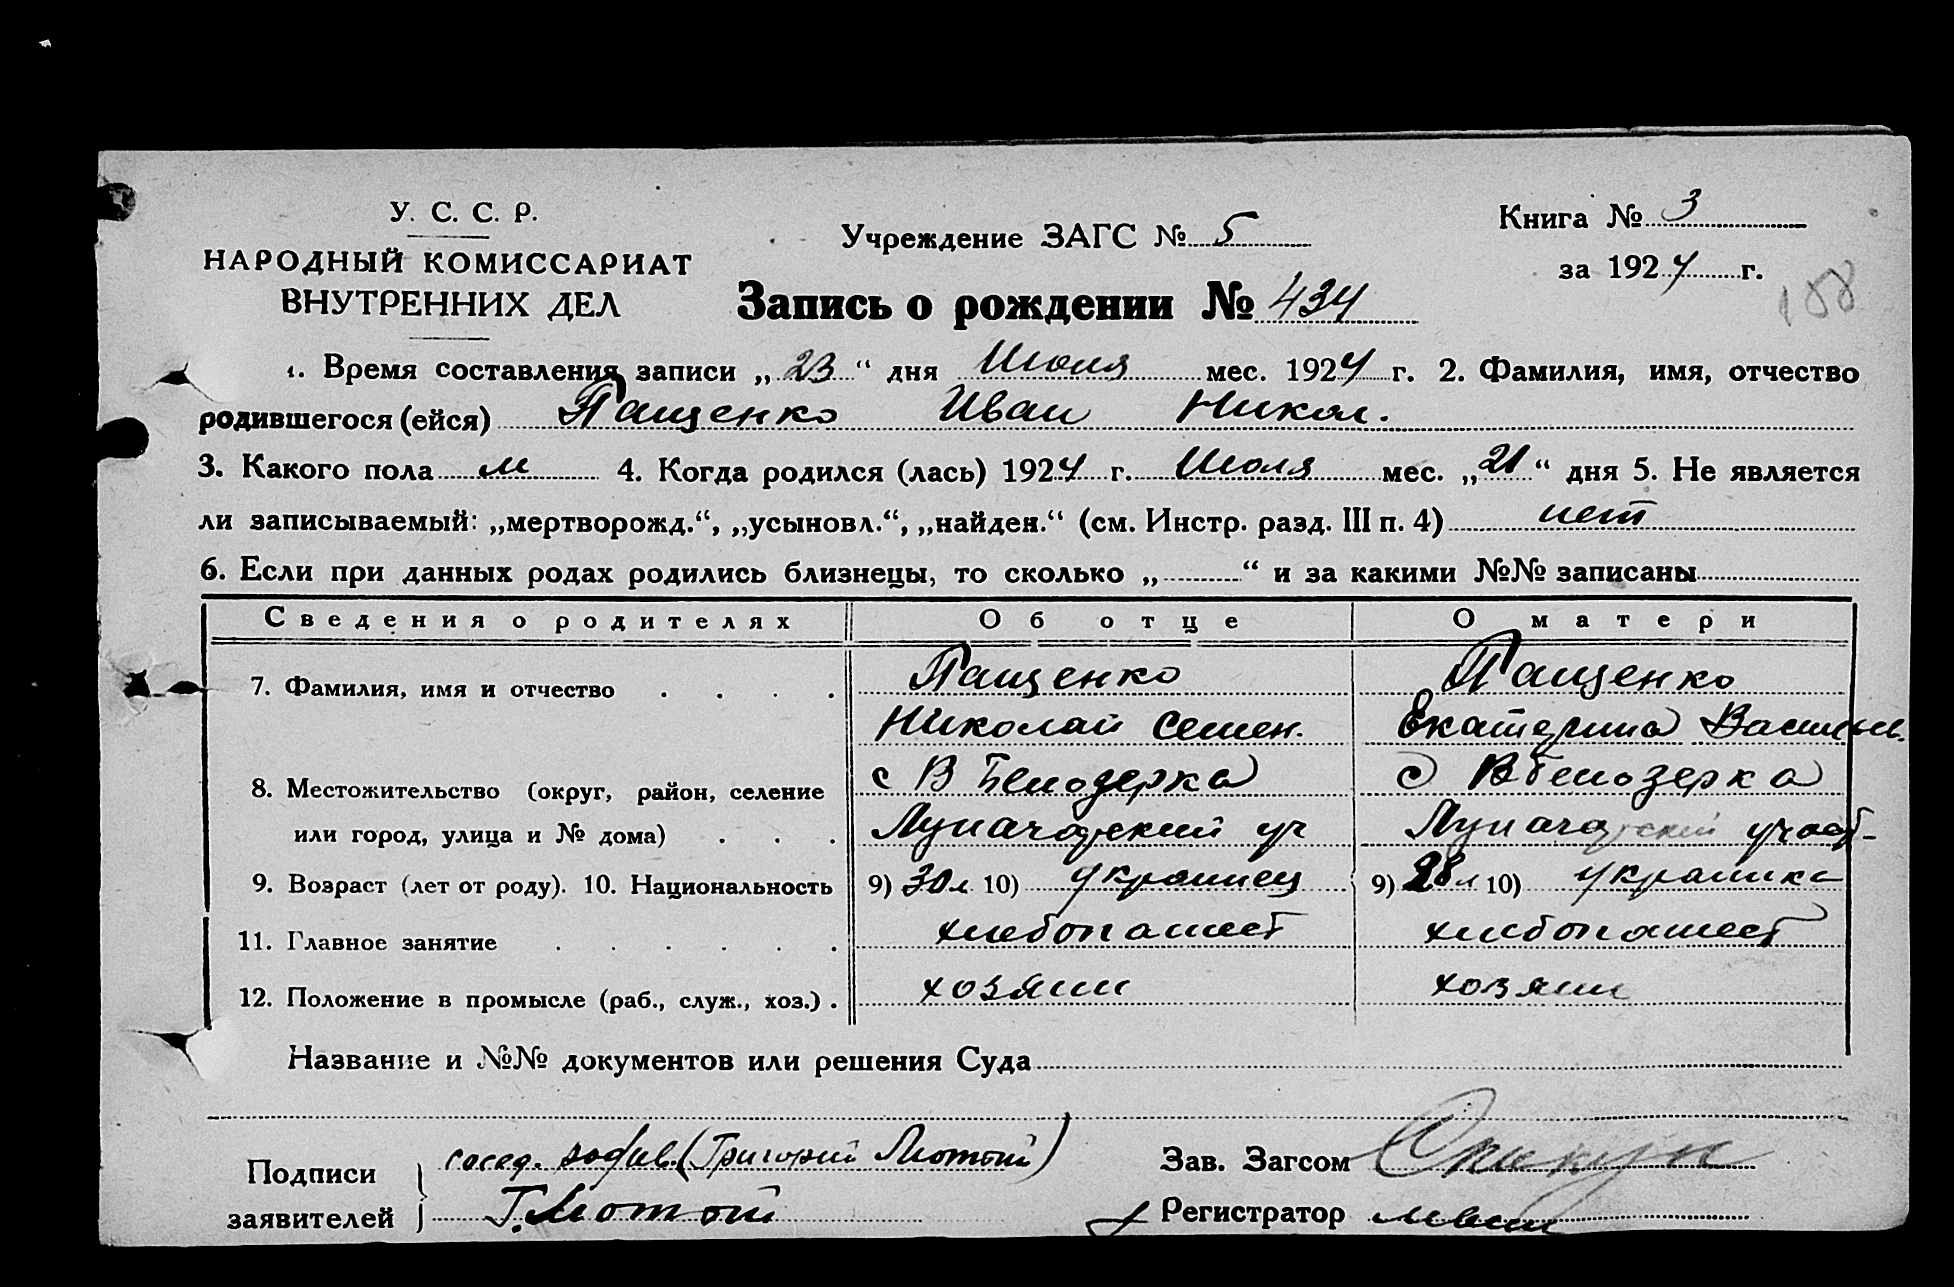 У. С. С. Р.
НАРОДНЫЙ КОМИССАРИАТ
ВНУТРЕННИХ ДЕЛ
Учреждение ЗАГС № 5
Книга № 3
за 1924 г.
188
Запись о рождении № 434
1. Время составления записи „23“ дня Июля мес. 1924 г. 2. Фамилия, имя, отчество
родившегося (ейся) Пащенко Иван Никол.
3. Какого пола м 4. Когда родился (лась) 1924 г. Июля мес. „21“ дня 5. Не является
ли записываемый: „мертворожд.“, „усыновл.“, „найден.“ (см. Инстр. разд. III п. 4) нет
6. Если при данных родах родились близнецы, то сколько „ “ и за какими №№ записаны
Сведения о родителях Об отце О матери
7. Фамилия, имя и отчество Пащенко Пащенко
Николай Семен. Екатерина Васильев.
8. Местожительство (округ, район, селение с В Белозерка с В Белозерка
или город, улица и № дома)
9. Возраст (лет от роду). 10. Национальность 9) 30 л 10) украинец 9) 28 л 10) украинка
11. Главное занятие хлебопашест хлебопашест
12. Положение в промысле (раб., служ., хоз.) хозяин хозяин
Название и №№ документов или решения Суда
Подписи сосед. (Григорий Лютой)
заявителей Г. Лютой
Зав. Загсом
Регистратор